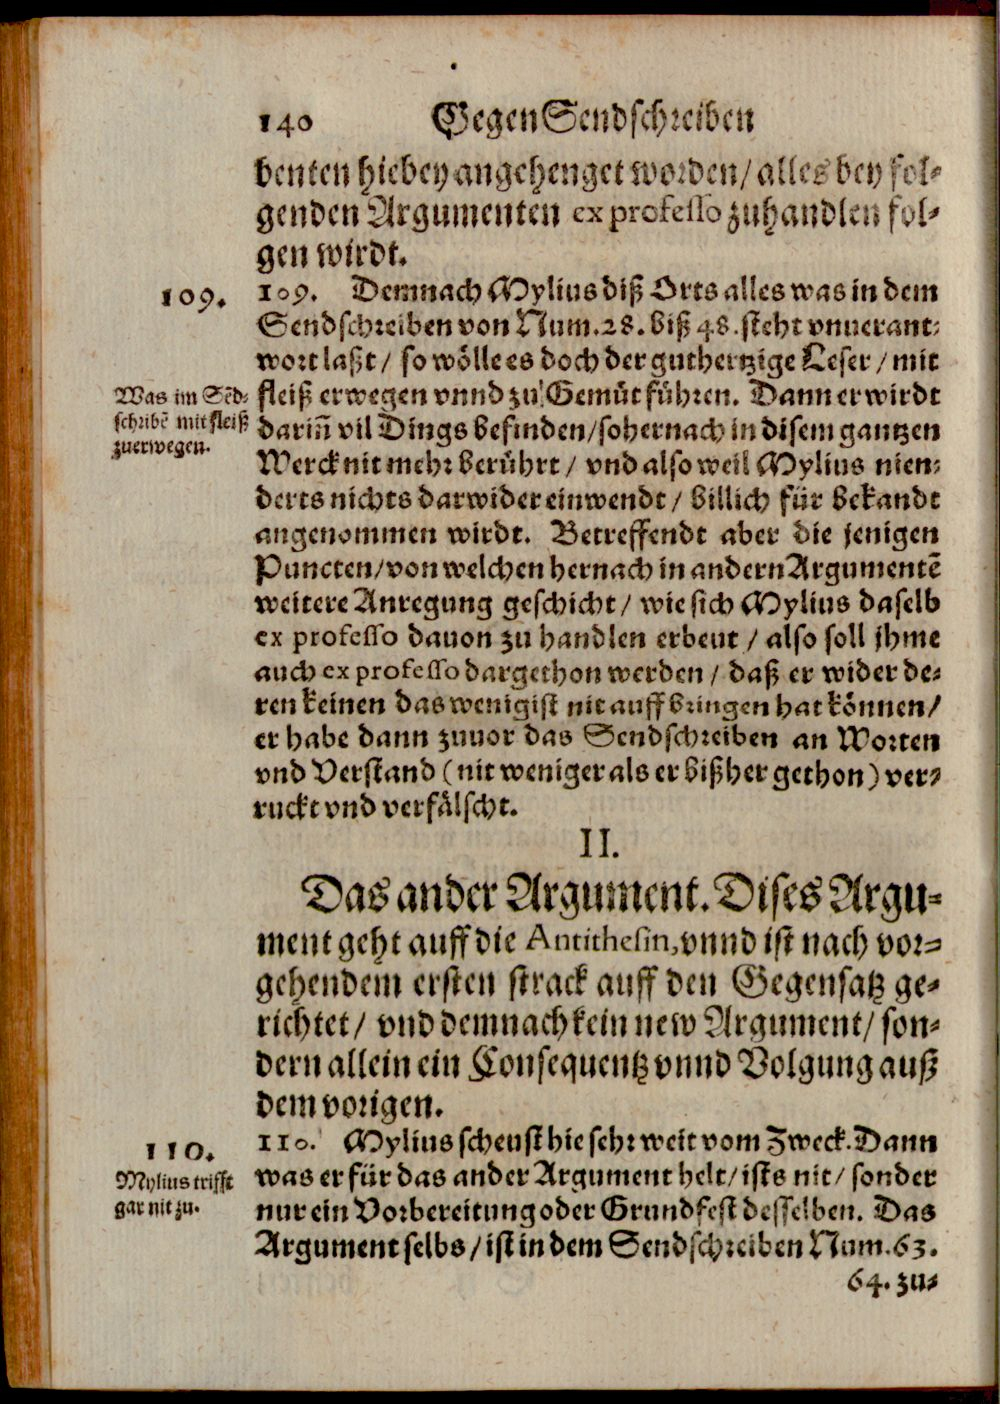 140 Gegen Sendschreiben
benten hiebey angehenget worden/ alles bey fol-
genden Argumenten ex professo zuhandlen fol-
gen wirdt.
109.
109. Demnach Mylius diß Orts alles was in dem
Sendschreiben von Num. 28. biß 48. steht vnuerant-
wort laßt / so wölle es doch der guthertzige Leser / mit
Was im Sẽd-
schribẽ mit fleiß
zuerwegen.
fleiß erwegen vnnd zu Gemüt führen. Dann er wirdt
dariñ vil Dings befinden/ so hernach in disem gantzen
Werck nit mehr berührt / vnd also weil Mylius nien-
derts nichts darwider einwendt / billich für bekandt
angenommen wirdt. Betreffendt aber die jenigen
Puncten/ von welchen hernach in andern Argumentẽ
weitere Anregung geschicht / wie sich Mylius daselb
ex professo dauon zu handlen erbeut / also soll jhme
auch ex professo dargethon werden / daß er wider de-
ren keinen das wenigist nit auffbringen hat können/
er habe dann zuuor das Sendschreiben an Worten
vnd Verstand (nit weniger als er bißher gethon) ver-
ruckt vnd verfälscht.
II.
Das ander Argument. Dises Argu-
ment geht auff die Antithesin, vnnd ist nach vor-
gehendem ersten strack auff den Gegensatz ge-
richtet / vnd demnach kein new Argument / son-
dern allein ein Consequentz vnnd Volgung auß
dem vorigen.
110.
Mylius trifft
gar nit zu.
110. Mylius scheust hie sehr weit vom Zweck. Dann
was er für das ander Argument helt / ists nit / sonder
nur ein Vorbereitung oder Grundfest desselben. Das
Argument selbs / ist in dem Sendschreiben Num. 63.
64. zu-